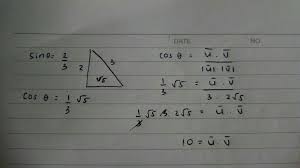 DATE NO
sin θ = 2/3
2 3
√5
cos θ = 1/3 √5
cos θ = ū . v̄ / |ū| |v̄|
1/3 √5 = ū . v̄ / 3 . 2√5
1/3 √5 . 3 . 2√5 = ū . v̄
10 = ū . v̄